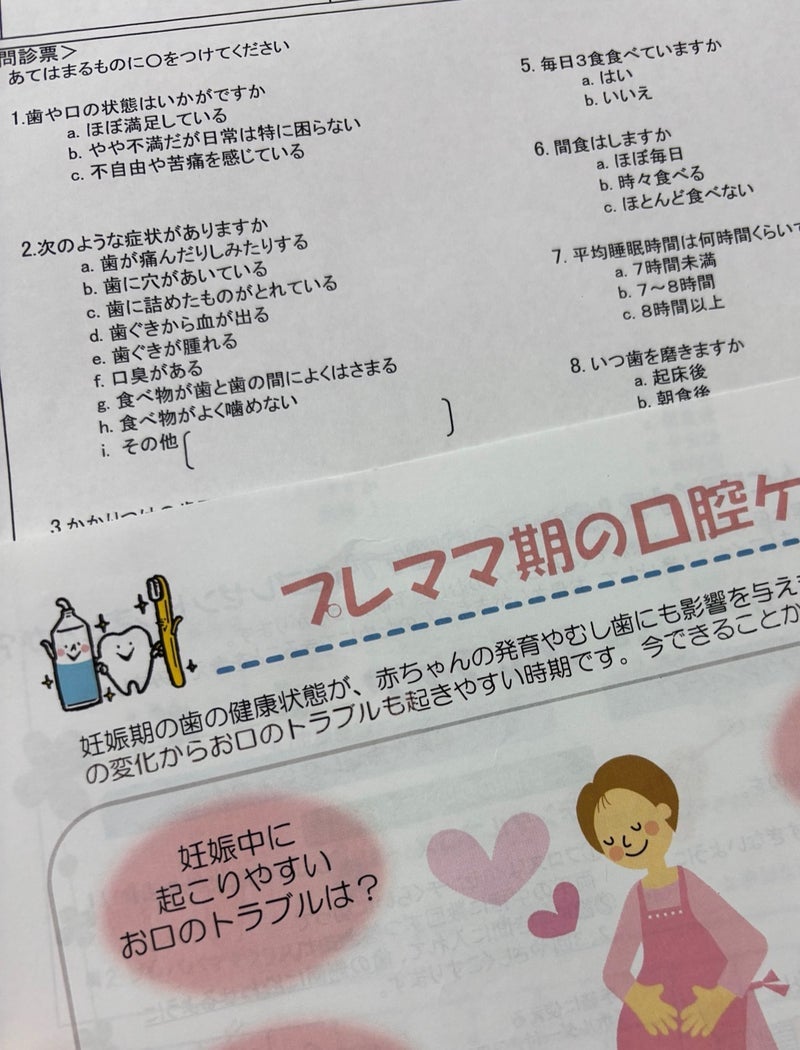 問診票＞
あてはまるものに○をつけてください
1.歯や口の状態はいかがですか
a. ほぼ満足している
b. やや不満だが日常は特に困らない
c. 不自由や苦痛を感じている
2.次のような症状がありますか
a. 歯が痛んだりしみたりする
b. 歯に穴があいている
c. 歯に詰めたものがとれている
d. 歯ぐきから血が出る
e. 歯ぐきが腫れる
f. 口臭がある
g. 食べ物が歯と歯の間によくはさまる
h. 食べ物がよく噛めない
i. その他
5. 毎日3食食べていますか
a. はい
b. いいえ
6. 間食はしますか
a. ほぼ毎日
b. 時々食べる
c. ほとんど食べない
7. 平均睡眠時間は何時間くらい
a. 7時間未満
b. 7～8時間
c. 8時間以上
8. いつ歯を磨きますか
a. 起床後
b. 朝食後
プレママ期の口腔ケ
妊娠期の歯の健康状態が、赤ちゃんの発育やむし歯にも影響を与え
の変化からお口のトラブルも起きやすい時期です。今できることか
妊娠中に
起こりやすい
お口のトラブルは？